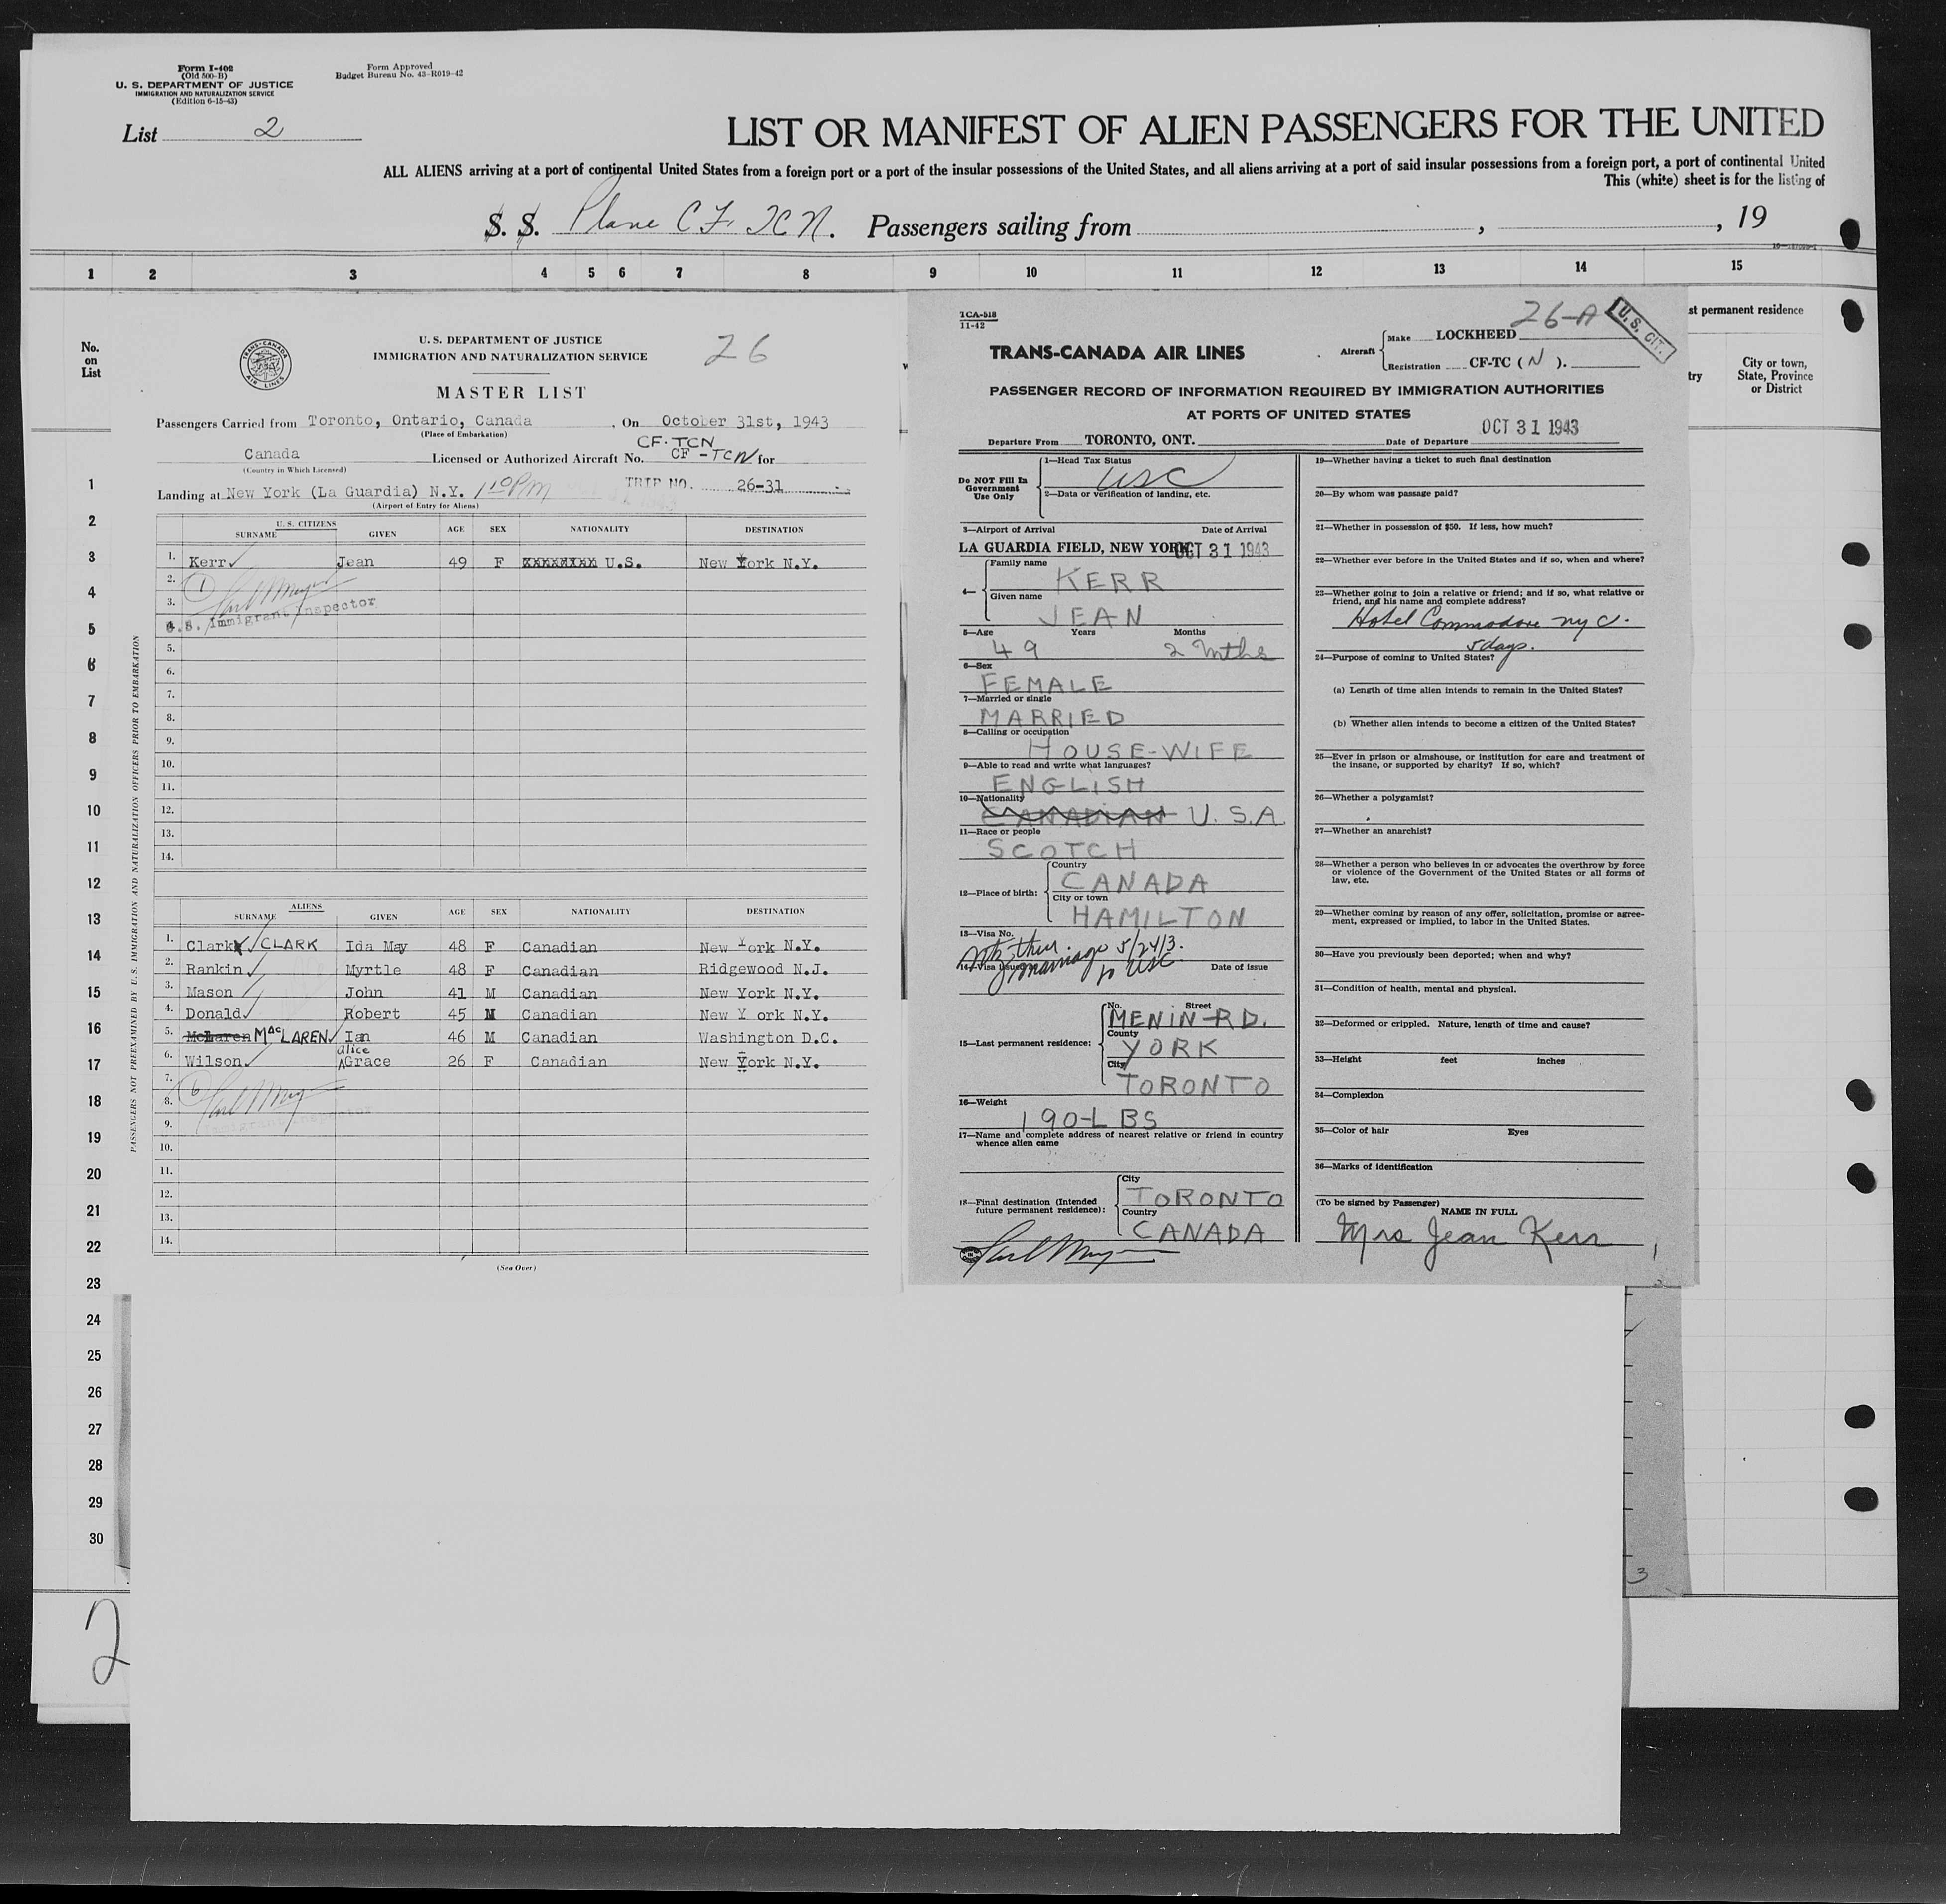 Form I-402
(Old 500-B)
U. S. DEPARTMENT OF JUSTICE
IMMIGRATION AND NATURALIZATION SERVICE
(Edition 6-15-43)
Form Approved
Budget Bureau No. 43-R019-42
List 2
LIST OR MANIFEST OF ALIEN PASSENGERS FOR THE UNITED
ALL ALIENS arriving at a port of continental United States from a foreign port or a port of the insular possessions of the United States, and all aliens arriving at a port of said insular possessions from a foreign port, a port of continental United
This (white) sheet is for the listing of
S. S. Plane CF. TCN. Passengers sailing from , , 19
1 2 3 4 5 6 7 8 9 10 11 12 13 14 15
No.
on
List
1
2
3
4
5
6
7
8
9
10
11
12
13
14
15
16
17
18
19
20
21
22
23
24
25
26
27
28
29
30
2
PASSENGERS NOT PREEXAMINED BY U. S. IMMIGRATION AND NATURALIZATION OFFICERS PRIOR TO EMBARKATION
TRANS-CANADA
AIR LINES
U. S. DEPARTMENT OF JUSTICE
IMMIGRATION AND NATURALIZATION SERVICE
26
MASTER LIST
Passengers Carried from Toronto, Ontario, Canada , On October 31st, 1943
(Place of Embarkation)
CF-TCN
Canada Licensed or Authorized Aircraft No. CF-TCN for
(Country in Which Licensed)
Landing at New York (La Guardia) N.Y. 1 10 PM TRIP NO. 26-31
(Airport of Entry for Aliens)
U. S. CITIZENS
SURNAME GIVEN AGE SEX NATIONALITY DESTINATION
1. Kerr Jean 49 F XXXXXXXX U.S. New York N.Y.
2. 1
3.
4. U.S. Immigrant Inspector
5.
6.
7.
8.
9.
10.
11.
12.
13.
14.
ALIENS
SURNAME GIVEN AGE SEX NATIONALITY DESTINATION
1. Clark CLARK Ida May 48 F Canadian New York N.Y.
2. Rankin Myrtle 48 F Canadian Ridgewood N.J.
3. Mason John 41 M Canadian New York N.Y.
4. Donald Robert 45 M Canadian New Y ork N.Y.
5. McLaren MacLAREN Ian 46 M Canadian Washington D.C.
alice
6. Wilson Grace 26 F Canadian New York N.Y.
7. 6
8.
9. Immigrant Inspector
10.
11.
12.
13.
14.
(See Over)
TCA-518
11-42
26-A
U. S. CIT.
TRANS-CANADA AIR LINES
Aircraft
Make LOCKHEED
Registration CF-TC ( N ).
PASSENGER RECORD OF INFORMATION REQUIRED BY IMMIGRATION AUTHORITIES
AT PORTS OF UNITED STATES
Departure From TORONTO, ONT. Date of Departure OCT 31 1943
Do NOT Fill In
Government
Use Only
1—Head Tax Status
USC
2—Data or verification of landing, etc.
3—Airport of Arrival Date of Arrival
LA GUARDIA FIELD, NEW YORK OCT 31 1943
4—
Family name
KERR
Given name
JEAN
5—Age Years Months
49 2 Mths
6—Sex
FEMALE
7—Married or single
MARRIED
8—Calling or occupation
HOUSE-WIFE
9—Able to read and write what languages?
ENGLISH
10—Nationality
CANADIAN U.S.A.
11—Race or people
SCOTCH
12—Place of birth:
Country
CANADA
City or town
HAMILTON
13—Visa No.
Ntz thru.
marriage 5/24/3.
to USC
14—Visa issued Date of issue
15—Last permanent residence:
No. Street
MENIN-RD.
County
YORK
City
TORONTO
16—Weight
190-LBS
17—Name and complete address of nearest relative or friend in country
whence alien came
18—Final destination (Intended
future permanent residence):
City
TORONTO
Country
CANADA
19—Whether having a ticket to such final destination
20—By whom was passage paid?
21—Whether in possession of $50. If less, how much?
22—Whether ever before in the United States and if so, when and where?
23—Whether going to join a relative or friend; and if so, what relative or
friend, and his name and complete address?
Hotel Commodore NYC.
5 days.
24—Purpose of coming to United States?
(a) Length of time alien intends to remain in the United States?
(b) Whether alien intends to become a citizen of the United States?
25—Ever in prison or almshouse, or institution for care and treatment of
the insane, or supported by charity? If so, which?
26—Whether a polygamist?
27—Whether an anarchist?
28—Whether a person who believes in or advocates the overthrow by force
or violence of the Government of the United States or all forms of
law, etc.
29—Whether coming by reason of any offer, solicitation, promise or agree-
ment, expressed or implied, to labor in the United States.
30—Have you previously been deported; when and why?
31—Condition of health, mental and physical.
32—Deformed or crippled. Nature, length of time and cause?
33—Height feet inches
34—Complexion
35—Color of hair Eyes
36—Marks of identification
(To be signed by Passenger)
NAME IN FULL
Mrs Jean Kerr
st permanent residence
try
City or town,
State, Province
or District
1
2
3